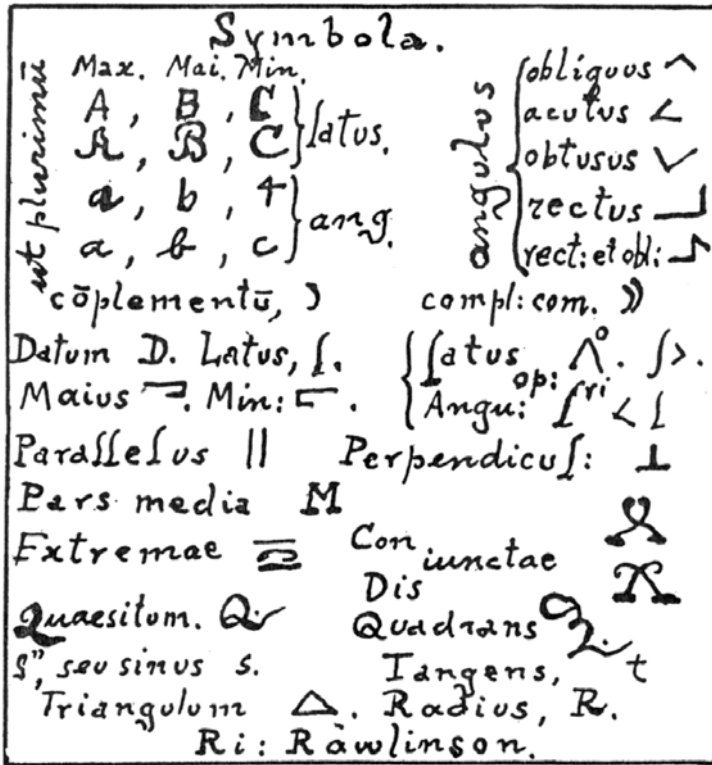 Symbola.
Max. Mai. Min.
ut plurimū
A, B, C
A, B, C } latus.
a, b, 4
a, b, c } ang.
angulos
obliquus ^
acutus <
obtusus ∨
rectus ⅃
rect: et obl:
cōplementū, )
compl: com. ))
Datum D. Latus, ʃ.
Maius ⫎. Min: ⫍.
ʃatus op: Λ°. ʃ>.
Angu: ʃri < ʃ
Paraʃʃeʃus ||
Perpendicuʃ: ⊥
Pars media M
Extremae
Con iunctae
Dis
Quaesitum. Q
Quadrans Q. t
s", seu sinus s.
Tangens, t
Triangulum △. Radius, R.
Ri: Rawlinson.